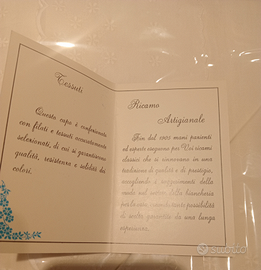 Tessuti
Questo capo è confezionato
con filati e tessuti accuratamente
selezionati, di cui si garantiscono
qualità, resistenza e solidità dei
colori.
Ricamo
Artigianale
Fin dal 1902 mani pazienti
ed esperte eseguono per Voi ricami
classici che si rinnovano in una
tradizione di qualità e di prestigio,
della
della biancheria
per la casa, possibilità
di scelta garantita da una lunga
esperienza.
Subito.it